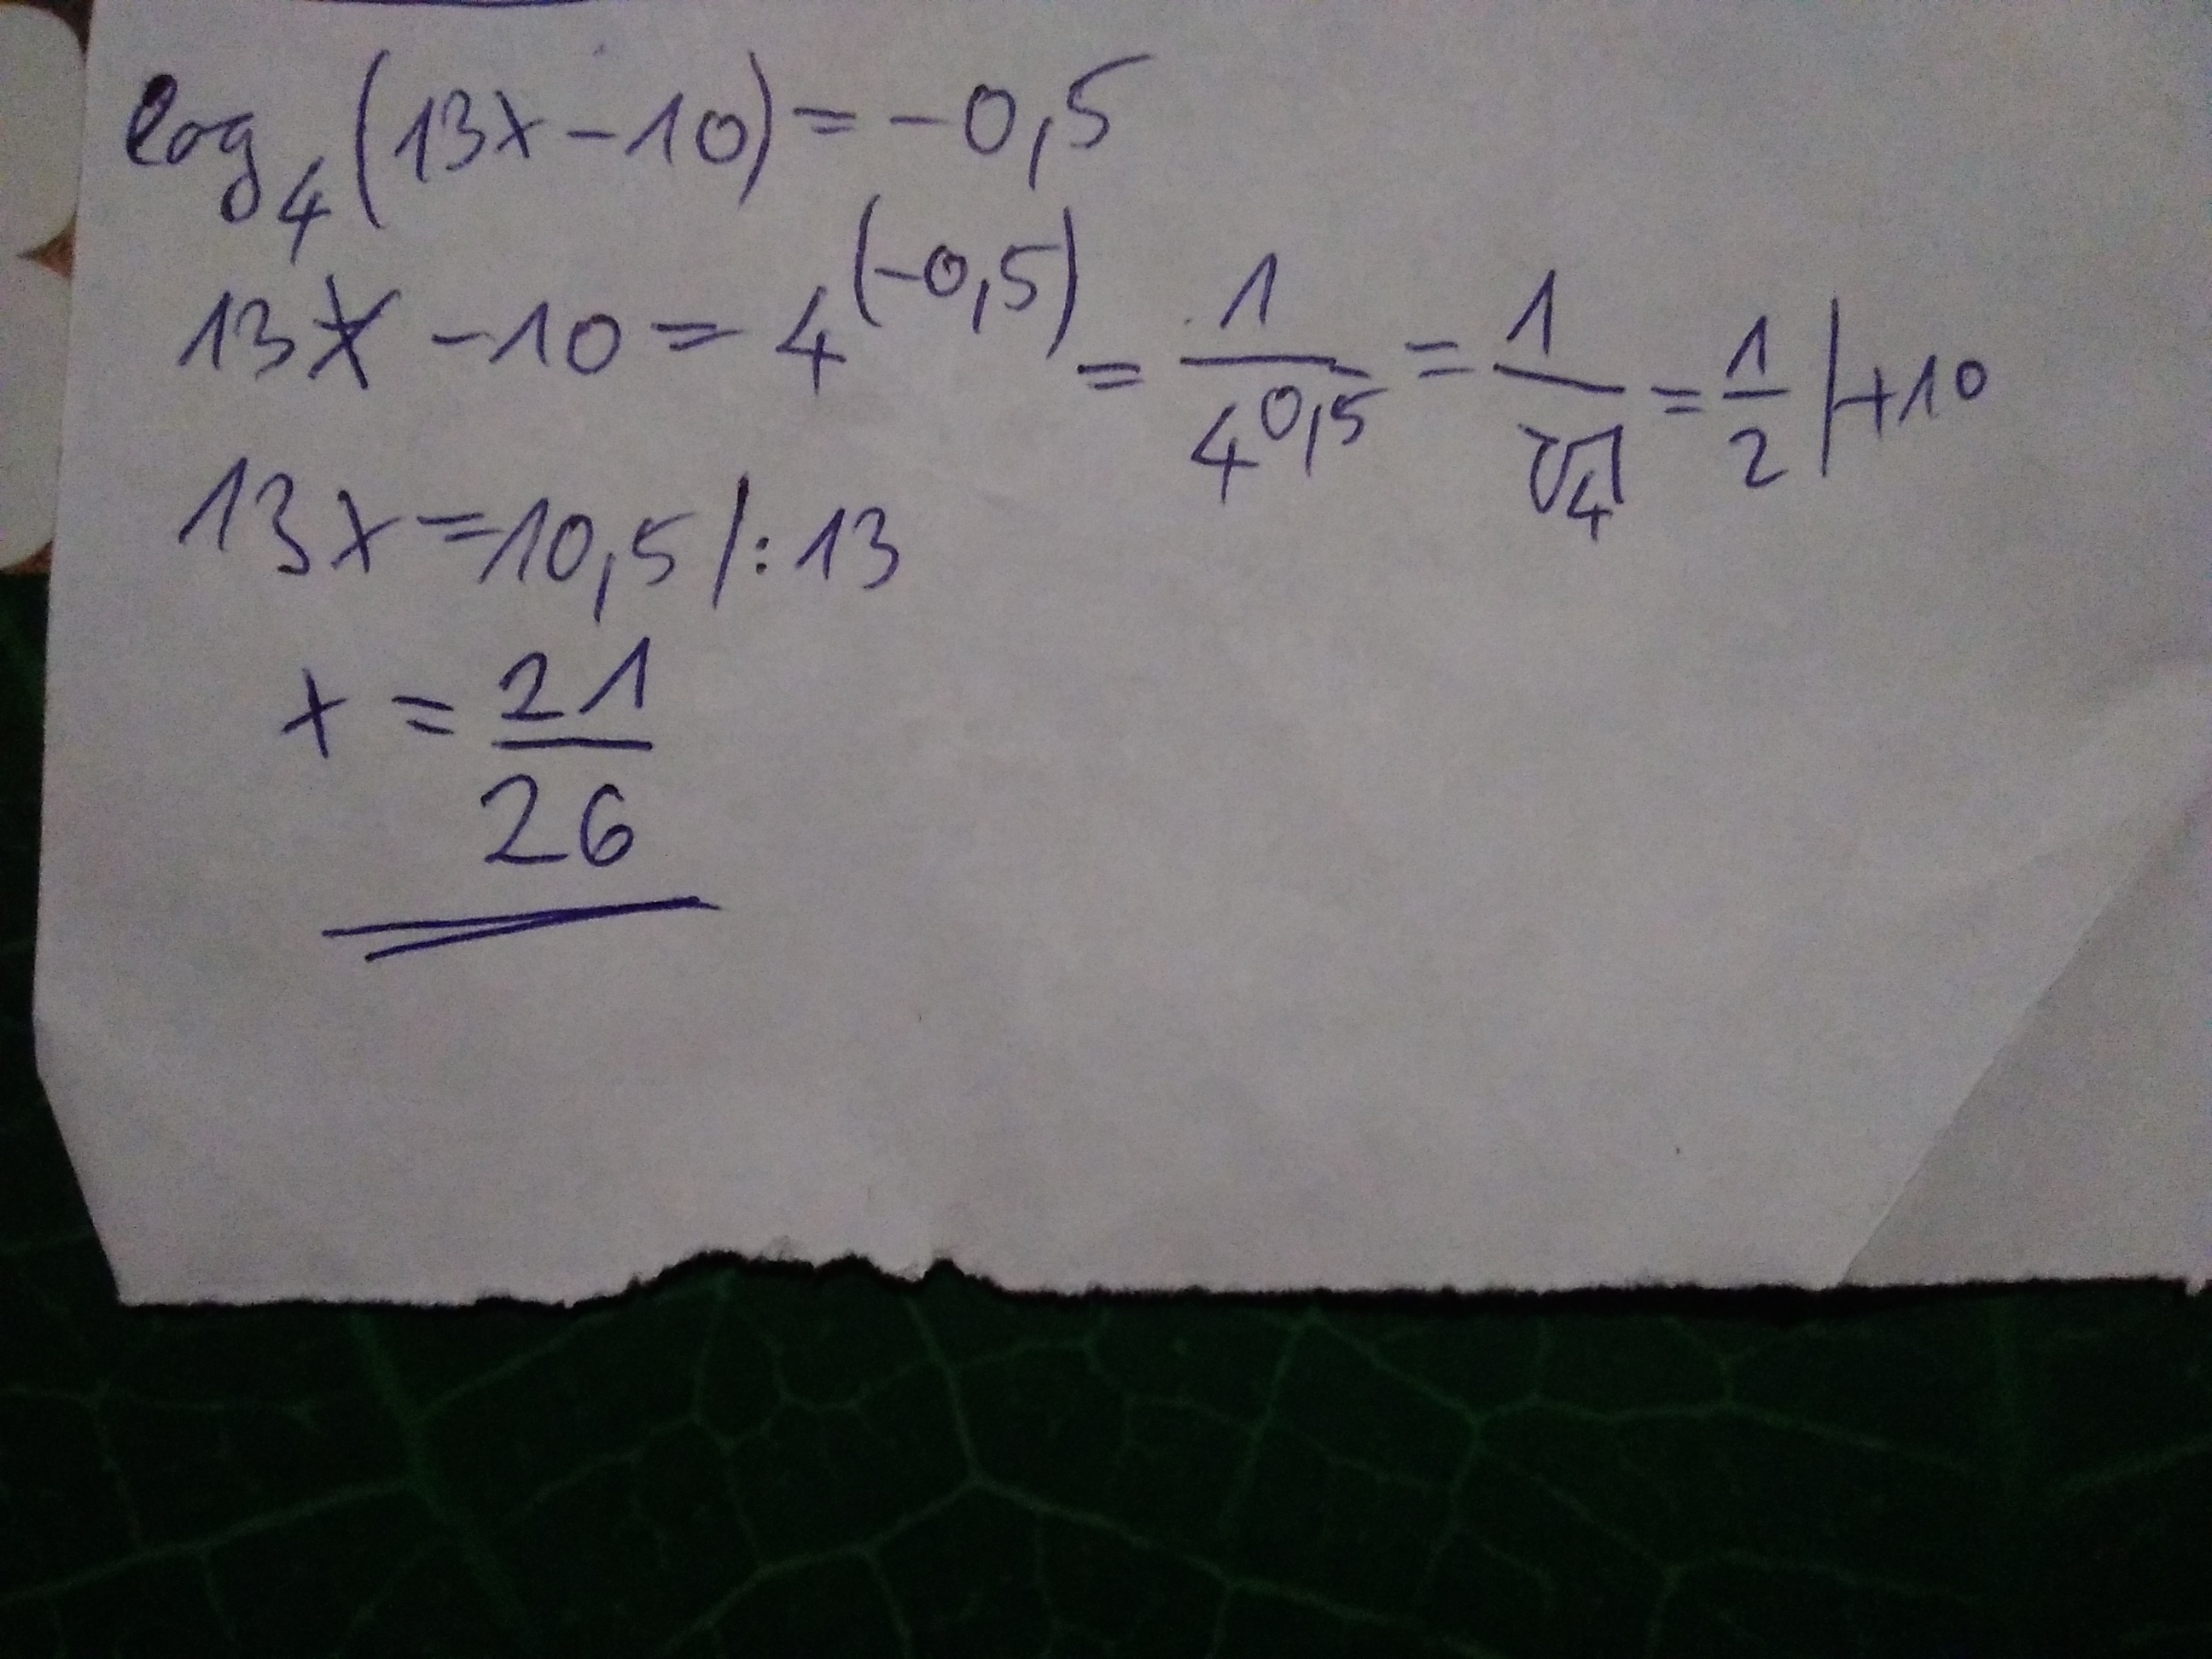 log₄(13x-10)=-0,5
13x-10=4^(-0,5)=1/4^0,5=1/²√4=1/2 |+10
13x=10,5 /:13
x=21/26